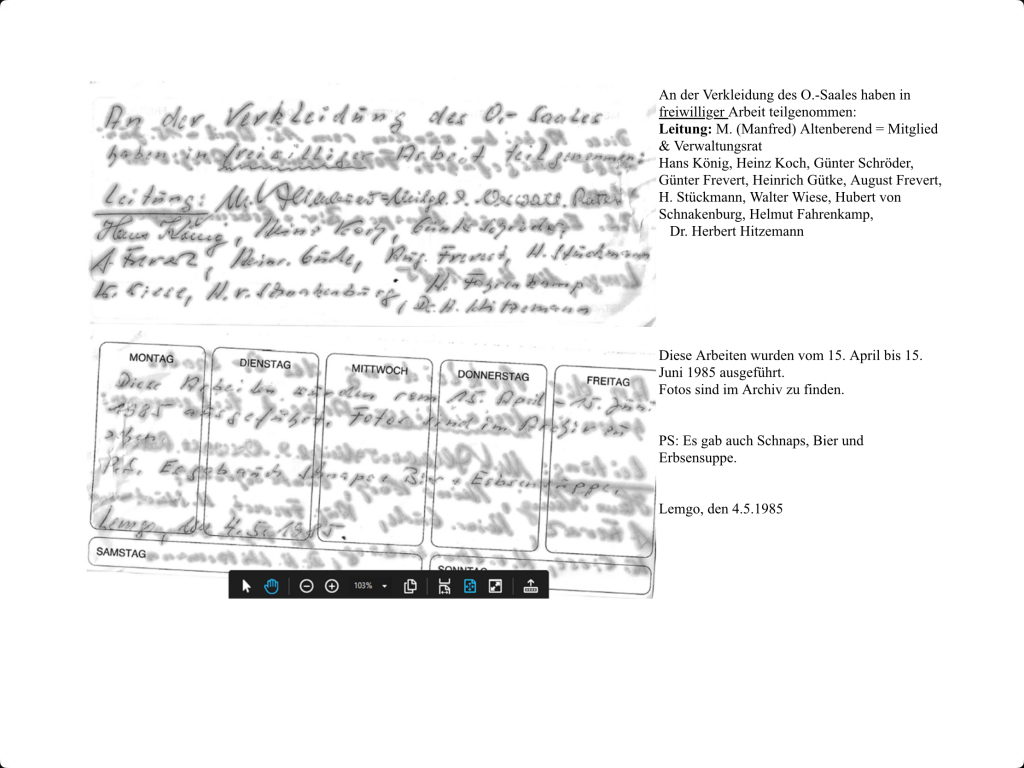 An der Verkleidung des O.- Saales
haben in freiwilliger Arbeit teilgenommen:
Leitung: M. Altenberend = Mitgl. &
Hans König, Heinz Koch, Günter Schröder,
Frevert, Heinr. Güdke, Aug. Frevert, H. Stückmann
H. Fahrenkamp
W. Wiese, H. v. Schnakenburg, Dr. H. Hitzemann
An der Verkleidung des O.-Saales haben in
freiwilliger Arbeit teilgenommen:
Leitung: M. (Manfred) Altenberend = Mitglied
& Verwaltungsrat
Hans König, Heinz Koch, Günter Schröder,
Günter Frevert, Heinrich Gütke, August Frevert,
H. Stückmann, Walter Wiese, Hubert von
Schnakenburg, Helmut Fahrenkamp,
Dr. Herbert Hitzemann
MONTAG DIENSTAG MITTWOCH DONNERSTAG FREITAG
Diese Arbeiten wurden vom 15. April - 15. Juni
1985 ausgeführt. Fotos sind im Archiv zu
P.S. Es gab auch Schnaps Bier + Erbsensuppe.
Lemgo, den 4.5.1985.
SAMSTAG SONNTAG
103%
Diese Arbeiten wurden vom 15. April bis 15.
Juni 1985 ausgeführt.
Fotos sind im Archiv zu finden.
PS: Es gab auch Schnaps, Bier und
Erbsensuppe.
Lemgo, den 4.5.1985